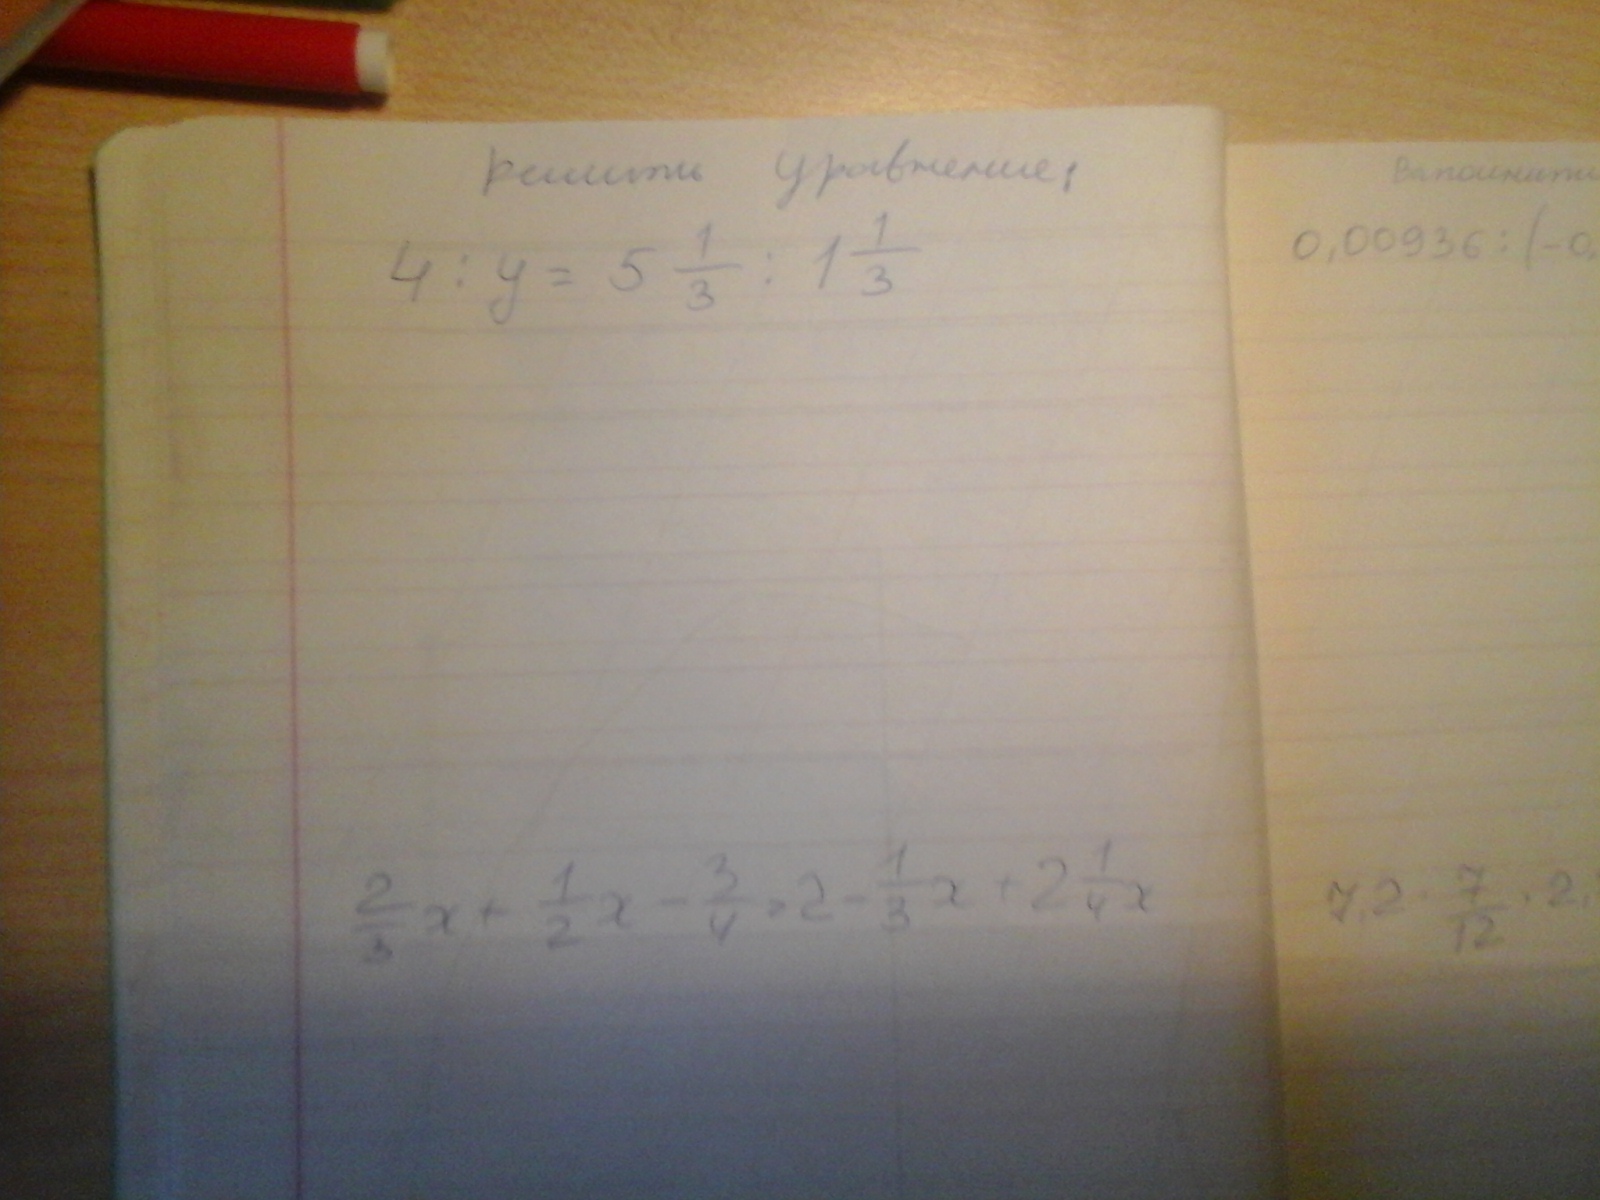 Решить уравнение:
4 : y = 5 1/3 : 1 1/3
2/3 x + 1/2 x - 3/4 = 2 - 1/3 x + 2 1/4 x
0,00936 : (-0,
7,2 · 7/12 · 2,